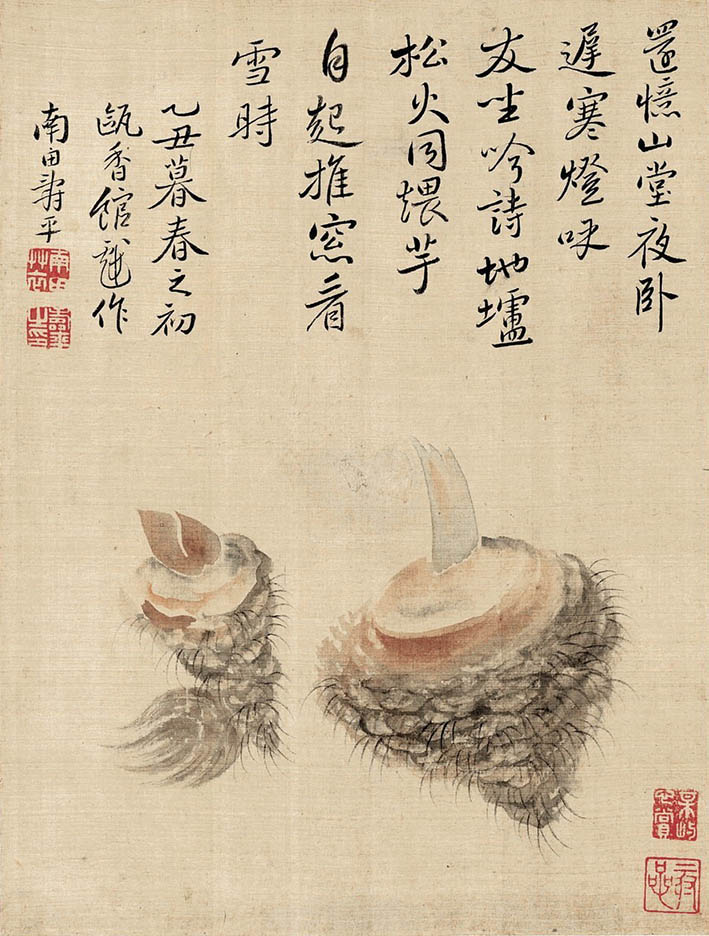 還憶山堂夜卧
遲寒燈呼
友坐吟詩地壚
松火同煨芋
自起推窓看
雪時
乙丑暮春之初
甌香館戲作
南田壽平
南田艸衣